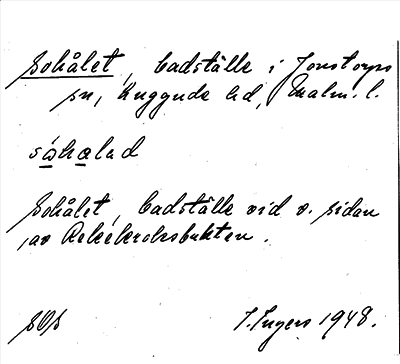 Sohålet, badställe i Jonstorps
sn, Luggude hd, Malm. l.
sóhålad
Sohålet, badställe vid v. sidan
av Rekekroksbukten.
SOS
I. Ingers 1948.